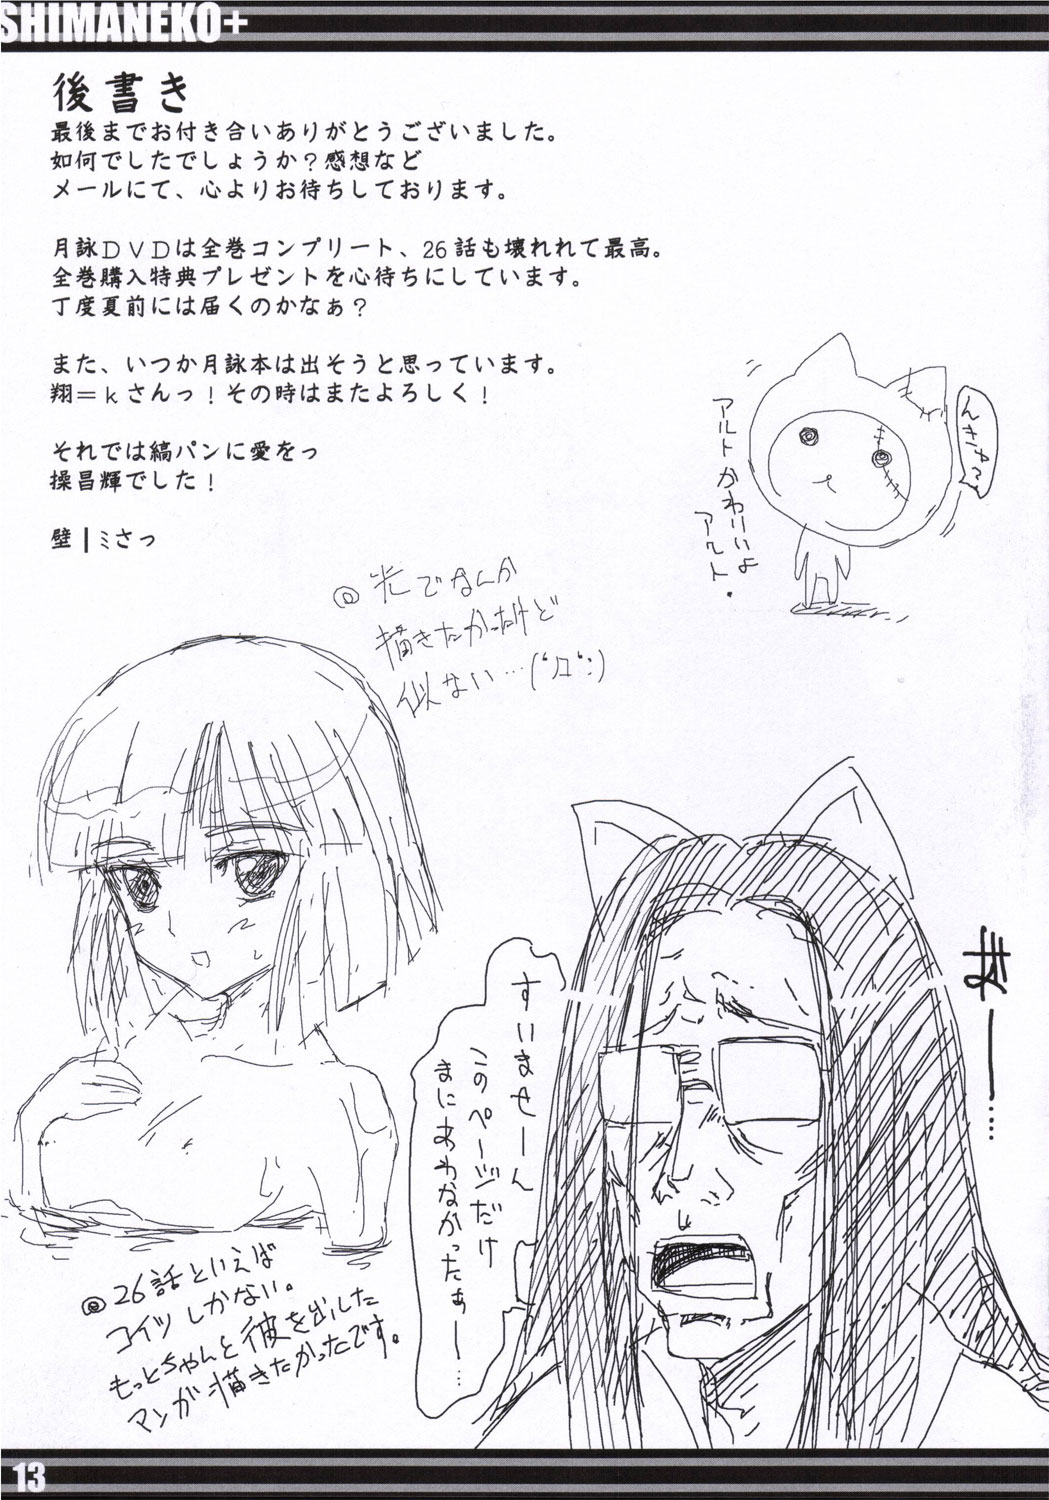 SHIMANEKO+
後書き
最後までお付き合いありがとうございました。
如何でしたでしょうか？感想など
メールにて、心よりお待ちしております。
月詠ＤＶＤは全巻コンプリート、26話も壊れれて最高。
全巻購入特典プレゼントを心待ちにしています。
丁度夏前には届くのかなぁ？
また、いつか月詠本は出そうと思っています。
翔＝ｋさんっ！その時はまたよろしく！
それでは縞パンに愛をっ
操昌輝でした！
壁┃ミさっ
アルトかわいいよ
アルト。
光でなんか
描きたかったけど
似ない…(
すいませーん
このページだけ
まにあわなかったぁー…
26話といえば
コイツしかない。
もっとちゃんと彼を出した
マンガ描きたかったです。
13